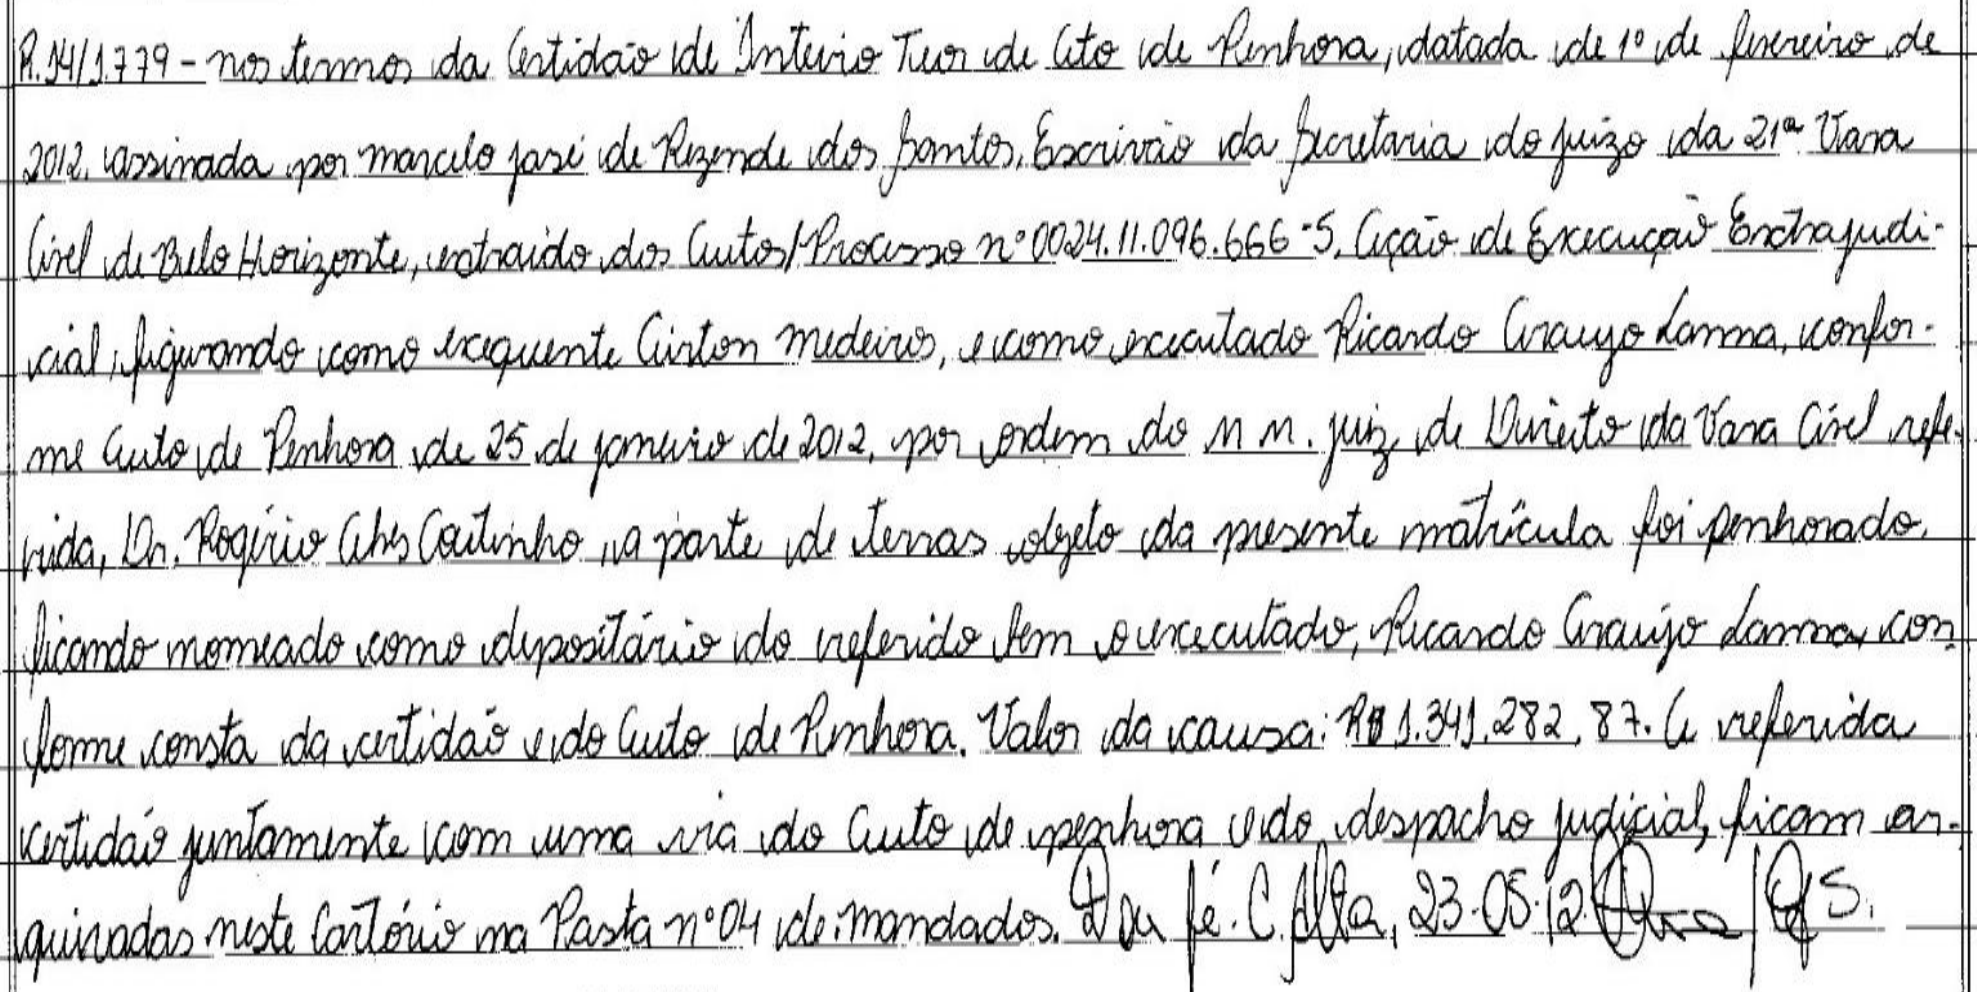 R.14/1.779 - nos termos da Certidão de Inteiro Teor de Ato de Penhora, datada de 1º de fevereiro de
2012, assinada por Marcelo José de Rezende dos Santos, Escrivão da Secretaria do Juizo da 21ª Vara
Cível de Belo Horizonte, extraido dos Autos/Processo nº 0024.11.096.666-5, Ação de Execução Extrajudi-
cial, figurando como exequente Airton Medeiros, e como executado Ricardo Araujo Lanna, confor-
me Auto de Penhora de 25 de janeiro de 2012, por ordem do M M. Juiz de Direito da Vara Cível refe-
rida, Dr. Rogério Alves Coutinho, a parte de terras objeto da presente matrícula foi penhorado,
ficando nomeado como depositário do referido bem o executado, Ricardo Araújo Lanna, con-
forme consta da certidão e do Auto de Penhora. Valor da causa: R$ 1.341.282,87. A referida
certidão juntamente com uma via do Auto de penhora e do despacho judicial, ficam ar-
quivadas neste Cartório na Pasta nº 04 de mandados. Dou fé. C. Alta, 23.05.12